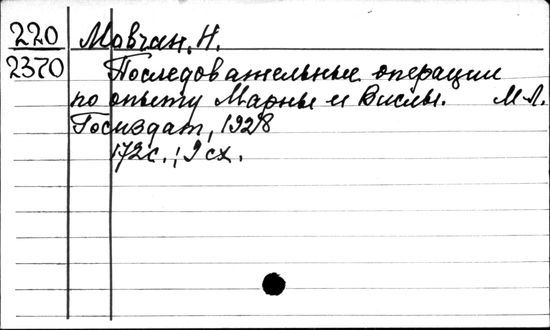 220 Мовчан, Н.
2370 Последовательные операции
по опыту Марны и Вислы. М-Л.
Госиздат, 1928
172с.; 9 сх.